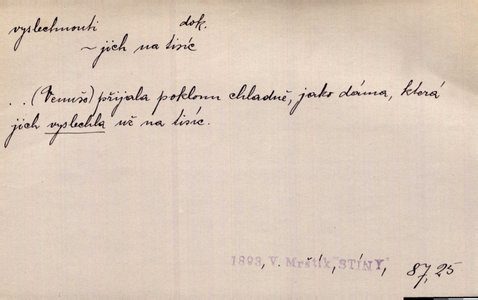 vyslechnouti dok.
~ jich na tisíc
. . (Venuše) přijala poklonu chladně, jako dáma, která
jich vyslechla už na tisíc.
1893, V. Mrštík, "STÍNY", 87, 25